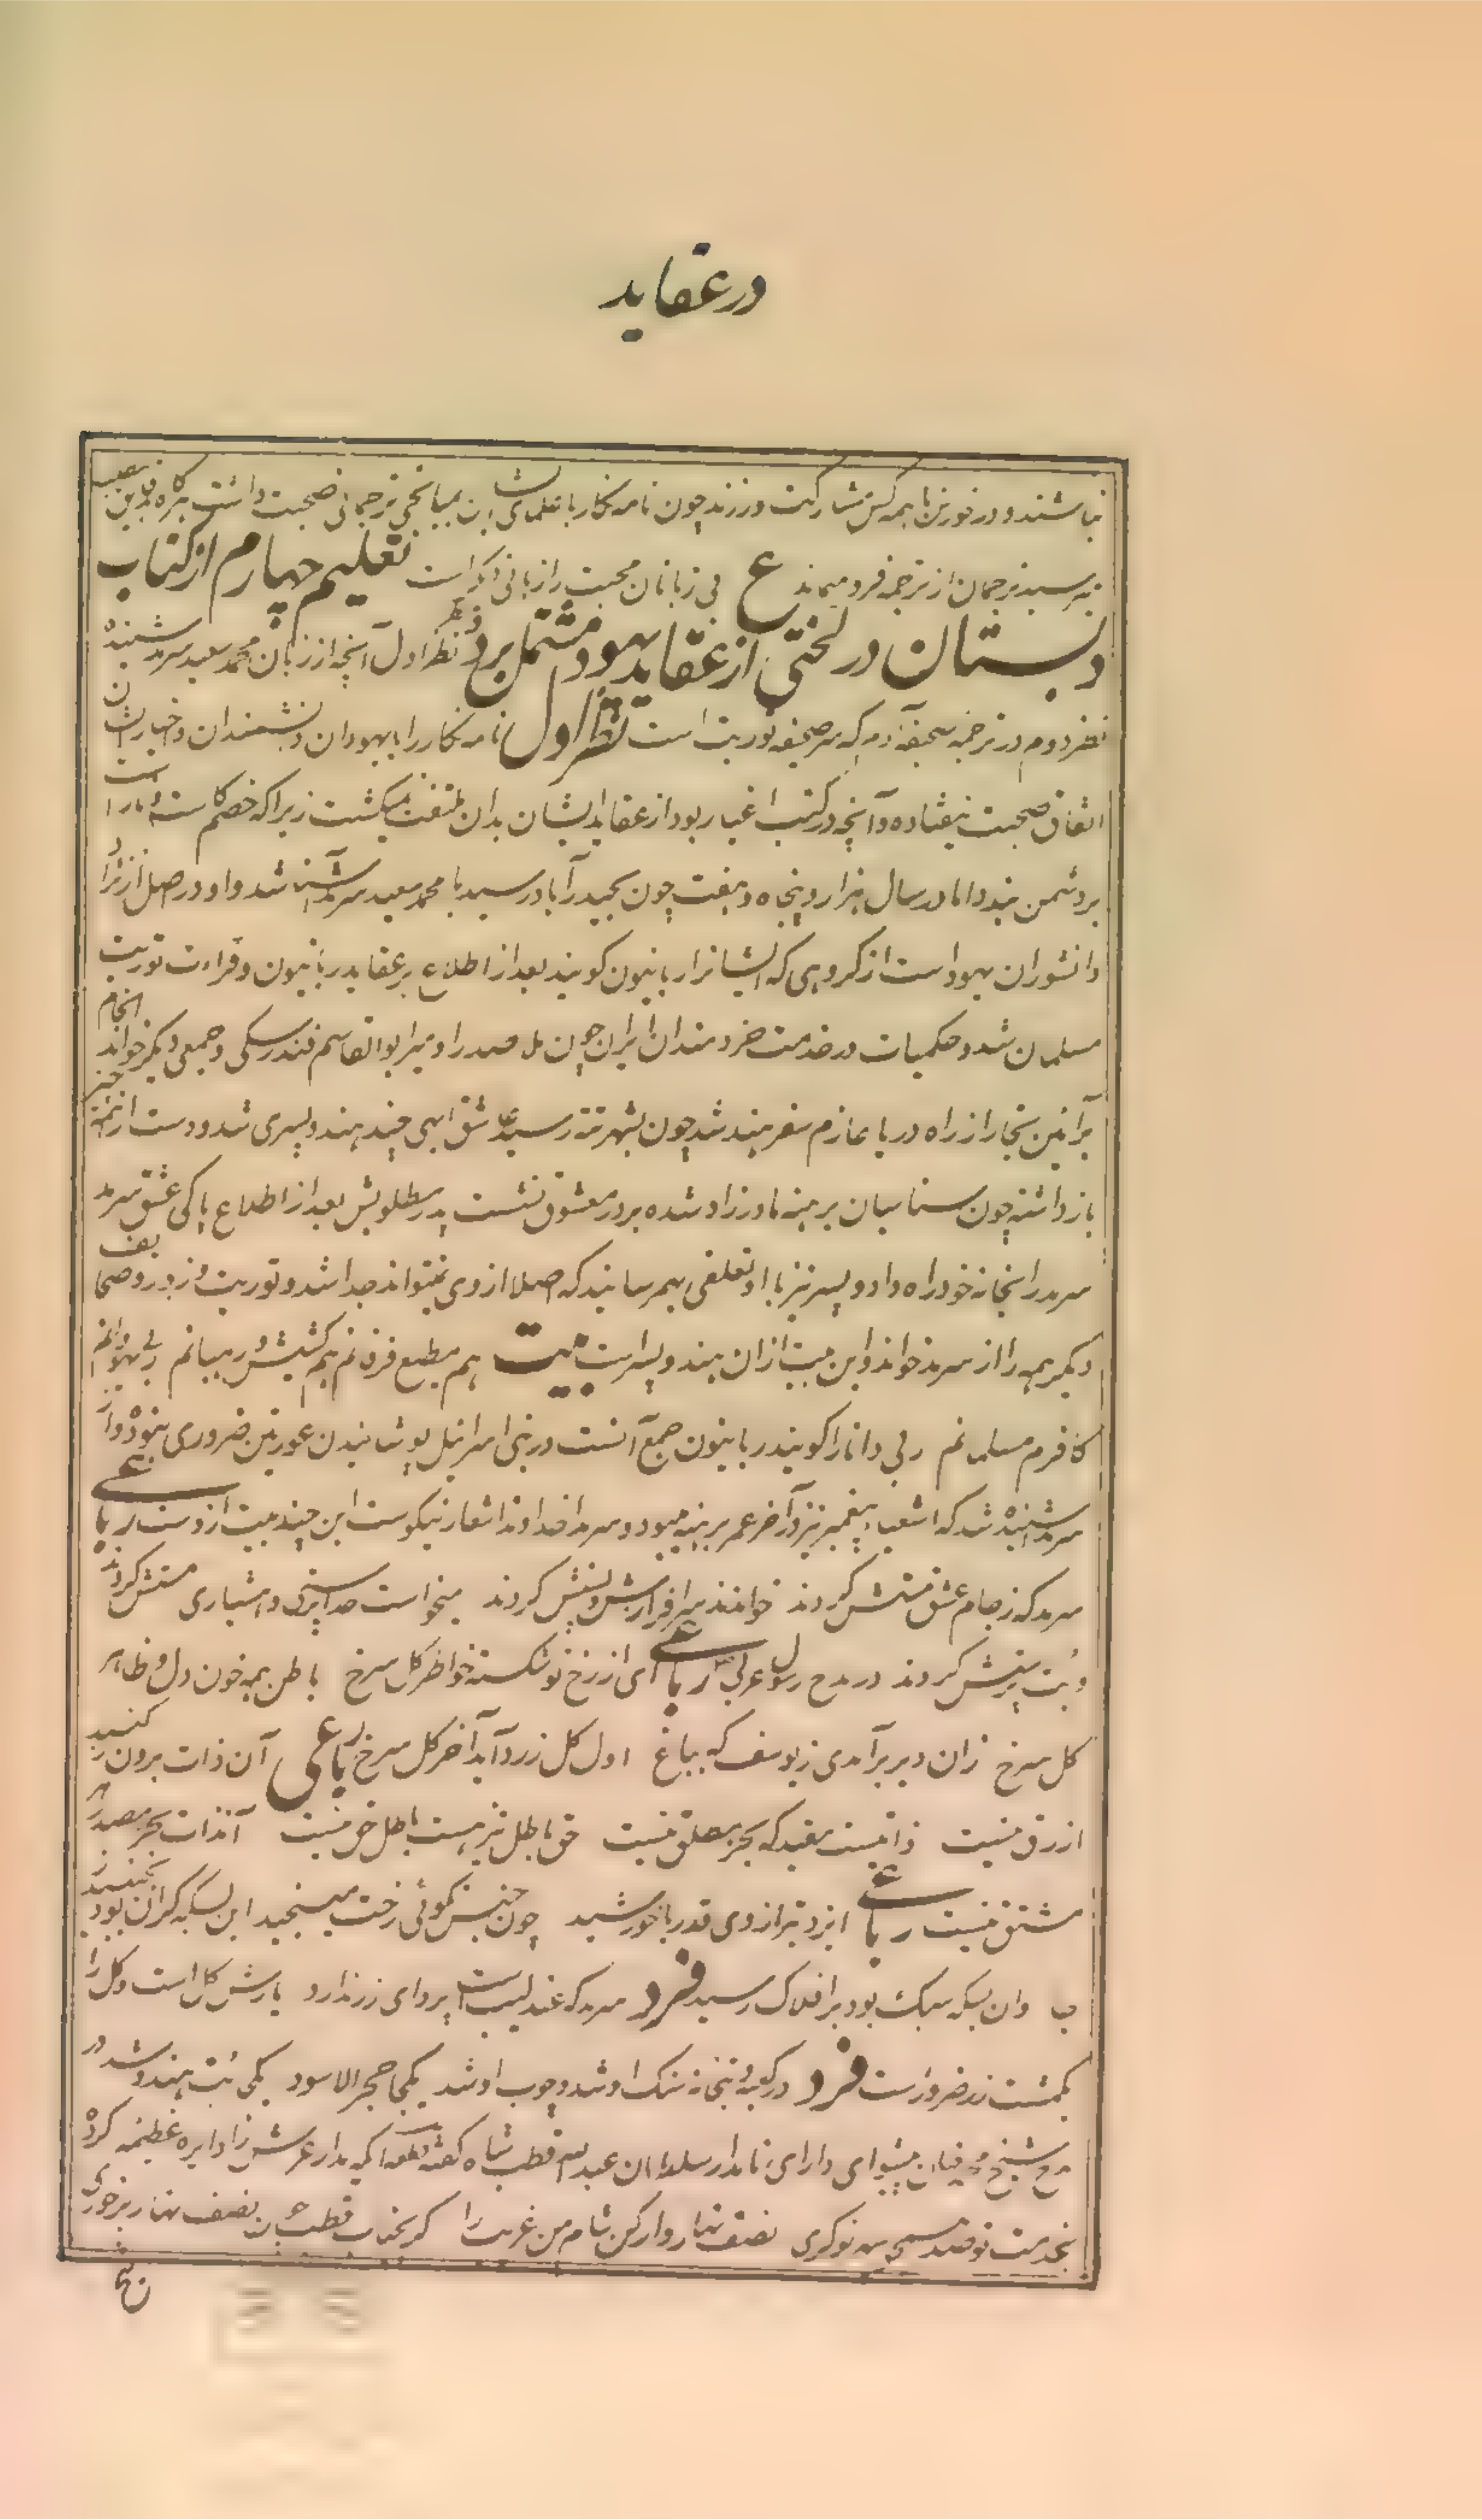 در عقاید
نباشند و در خوردن با همه کس مشارکت ورزند چون نامه نگار با علمای ایشان بمیانجی ترجمانی صحبت داشت هرگاه بدقیق
میرسید ترجمان از ترجمه فرو میماند ع بی زبانان محبت را زبانی دیگر است تعلیم چهارم از کتاب
دبستان در لختی از عقاید یهود مشتمل بر دو نظر نظر اول آنچه از زبان محمد سعید سرمد شنیده
نظر دوم در ترجمه صحیفه آدم که سر صحیفه توریت است نظر اول نامه نگار را با یهودان و دانشمندان و اخبار ایشان
اتفاق صحبت نیفتاده و آنچه در کتب اغیار بود از عقاید ایشان بدان ملتفت نمیگشت زیرا که خصم کاست و ناراست
بر دشمن بندد اما در سال هزار و پنجاه و هفت چون بحیدرآباد رسید با محمد سعید سرمد آشنا شد و او در اصل از نژاد
دانشوران یهود است از گروهی که ایشانرا ربانیون گویند بعد از اطلاع بر عقاید ربانیون و قراءت توریت
مسلمان شد و حکمیات در خدمت خردمندان ایران چون ملا صدرا و میر ابوالقاسم فندرسکی و جمعی دیگر خواند انجام
برآئین تجار از راه دریا عازم سفر هند شد چون بشهر تته رسید عاشق ابهی چند هندو پسری شد و دست از همه چیز
باز داشته چون سناسیان برهنه مادرزاد شده بر در معشوق نشست پدر مطلوبش بعد از اطلاع پاکی عشق سرمد
سرمد را بخانه خود راه داد و پسر نیز با او تعلقی بهمرسانید که اصلا از وی نمیتواند جدا شد و توریت و زبور و صحایف
دیگر همه را از سرمد خواند و این بیت از آن هندو پسر است بیت هم مطیع فرقانم هم کشیش و رهبانم ربی یهودانم
کافرم مسلمانم ربی دانا را گویند ربانیون جمع آنست در بنی اسرائیل پوشانیدن عورتین ضروری نبود و از
سرمد شنیده شد که اشعیا پیغمبر نیز در آخر عمر برهنه میبود و سرمد خداوند اشعار نیکوست این چند بیت از دوست رباعی
سرمد که ز جام عشق مستش کردند خواندند سرافرازش و پستش کردند میخواست خدا پرستی و هشیاری مستش کردند
و بت پرستش کردند در مدح رسول عربی رباعی ای از رخ تو شکسته خاطر گل سرخ باطن همه خون دل و ظاهر
گل سرخ زان دیر برآمدی ز یوسف که بباغ اول گل زرد آید آخر گل سرخ رباعی آن ذات برون ز گنبد
ازرق نیست ذاتیست مقید که بجز مطلق نیست حق باطل نیز هست باطل حق نیست آن ذات بجز مصدر هر
مشتق نیست رباعی ایزد بترازوی قدر با خورشید چون جنس نکوئی رخت میسنجید این بسکه گران بود نجنبید
ب وان بسکه سبک بود بر افلاک رسید فرد سرمد که عندلیب است پروای زر ندارد یارش گل است و گل را
یکمشت زر ضرور است فرد در کعبه و بتخانه سنگ او شد و چوب او شد یکجا حجر الاسود یکجا بت هندو شد در
مدح شیخ پیشوای دارای نامدار سلطان عبدالله قطب شاه گفته قطعه ای که مدار عرش را دایره عظیمه کرد
بخدمت تو قد مسیح سر نوکری نصف نهار وار کن شام من غریب را کز نصف نهار برخوری